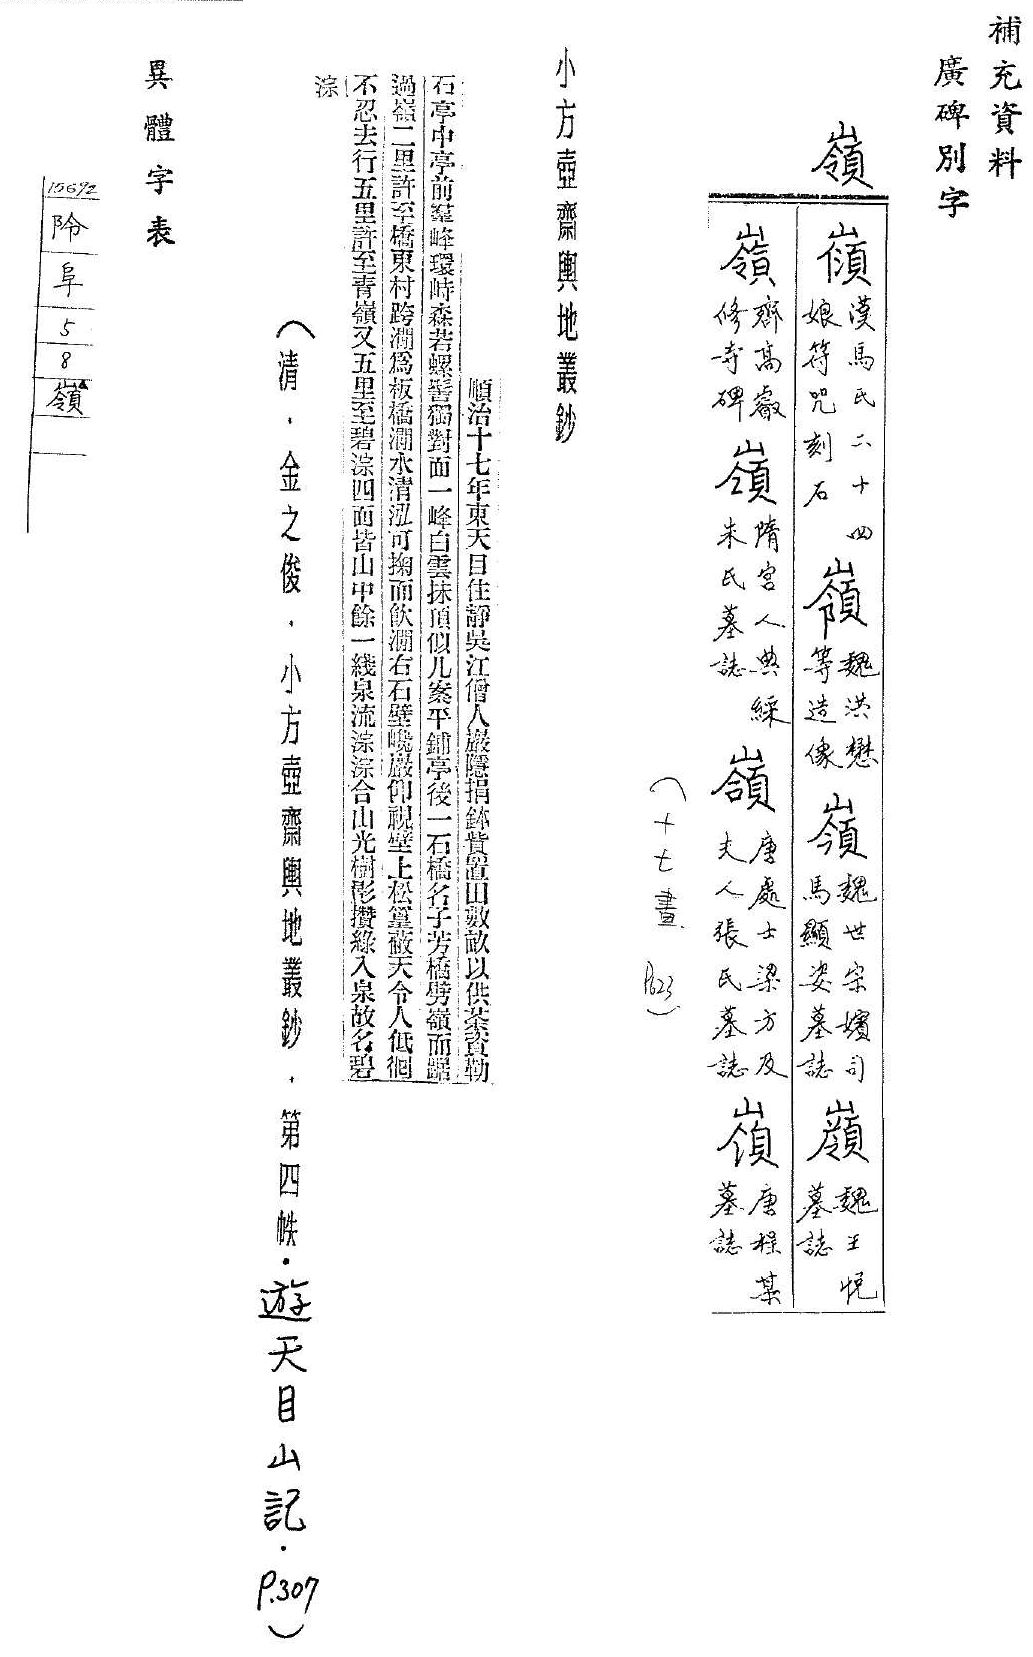 補充資料
廣碑別字
嶺
漢馬氏二十四娘符咒刻石
魏洪懋等造像
魏世宗嬪司馬顯姿墓誌
魏王悅墓誌
齊高叡修寺碑
嶺
隋宮人典綵朱氏墓誌
唐處士梁方及夫人張氏墓誌
唐程某墓誌
(十七畫 P.623)
小方壺齋輿地叢鈔
順治十七年東天目住靜吳江僧人巖隱捐鉢貲置田數畝以供茶資勒
石亭中亭前羣峰環峙森若螺髻獨對面一峰白雲抹頂似几案平鋪亭後一石橋名子芳橋劈嶺而踞
過嶺二里許至橋東村跨澗爲板橋澗水清泓可掬而飲澗右石壁巉巖仰視壁上松篁蔽天令人低徊
不忍去行五里許至青嶺又五里至碧淙四面皆山中餘一綫泉流淙淙合山光樹影攢綠入泉故名碧
淙
(清.金之俊.小方壺齋輿地叢鈔.第四帙.遊天目山記.P.307)
異體字表
15692
阾
阜
5
8
嶺